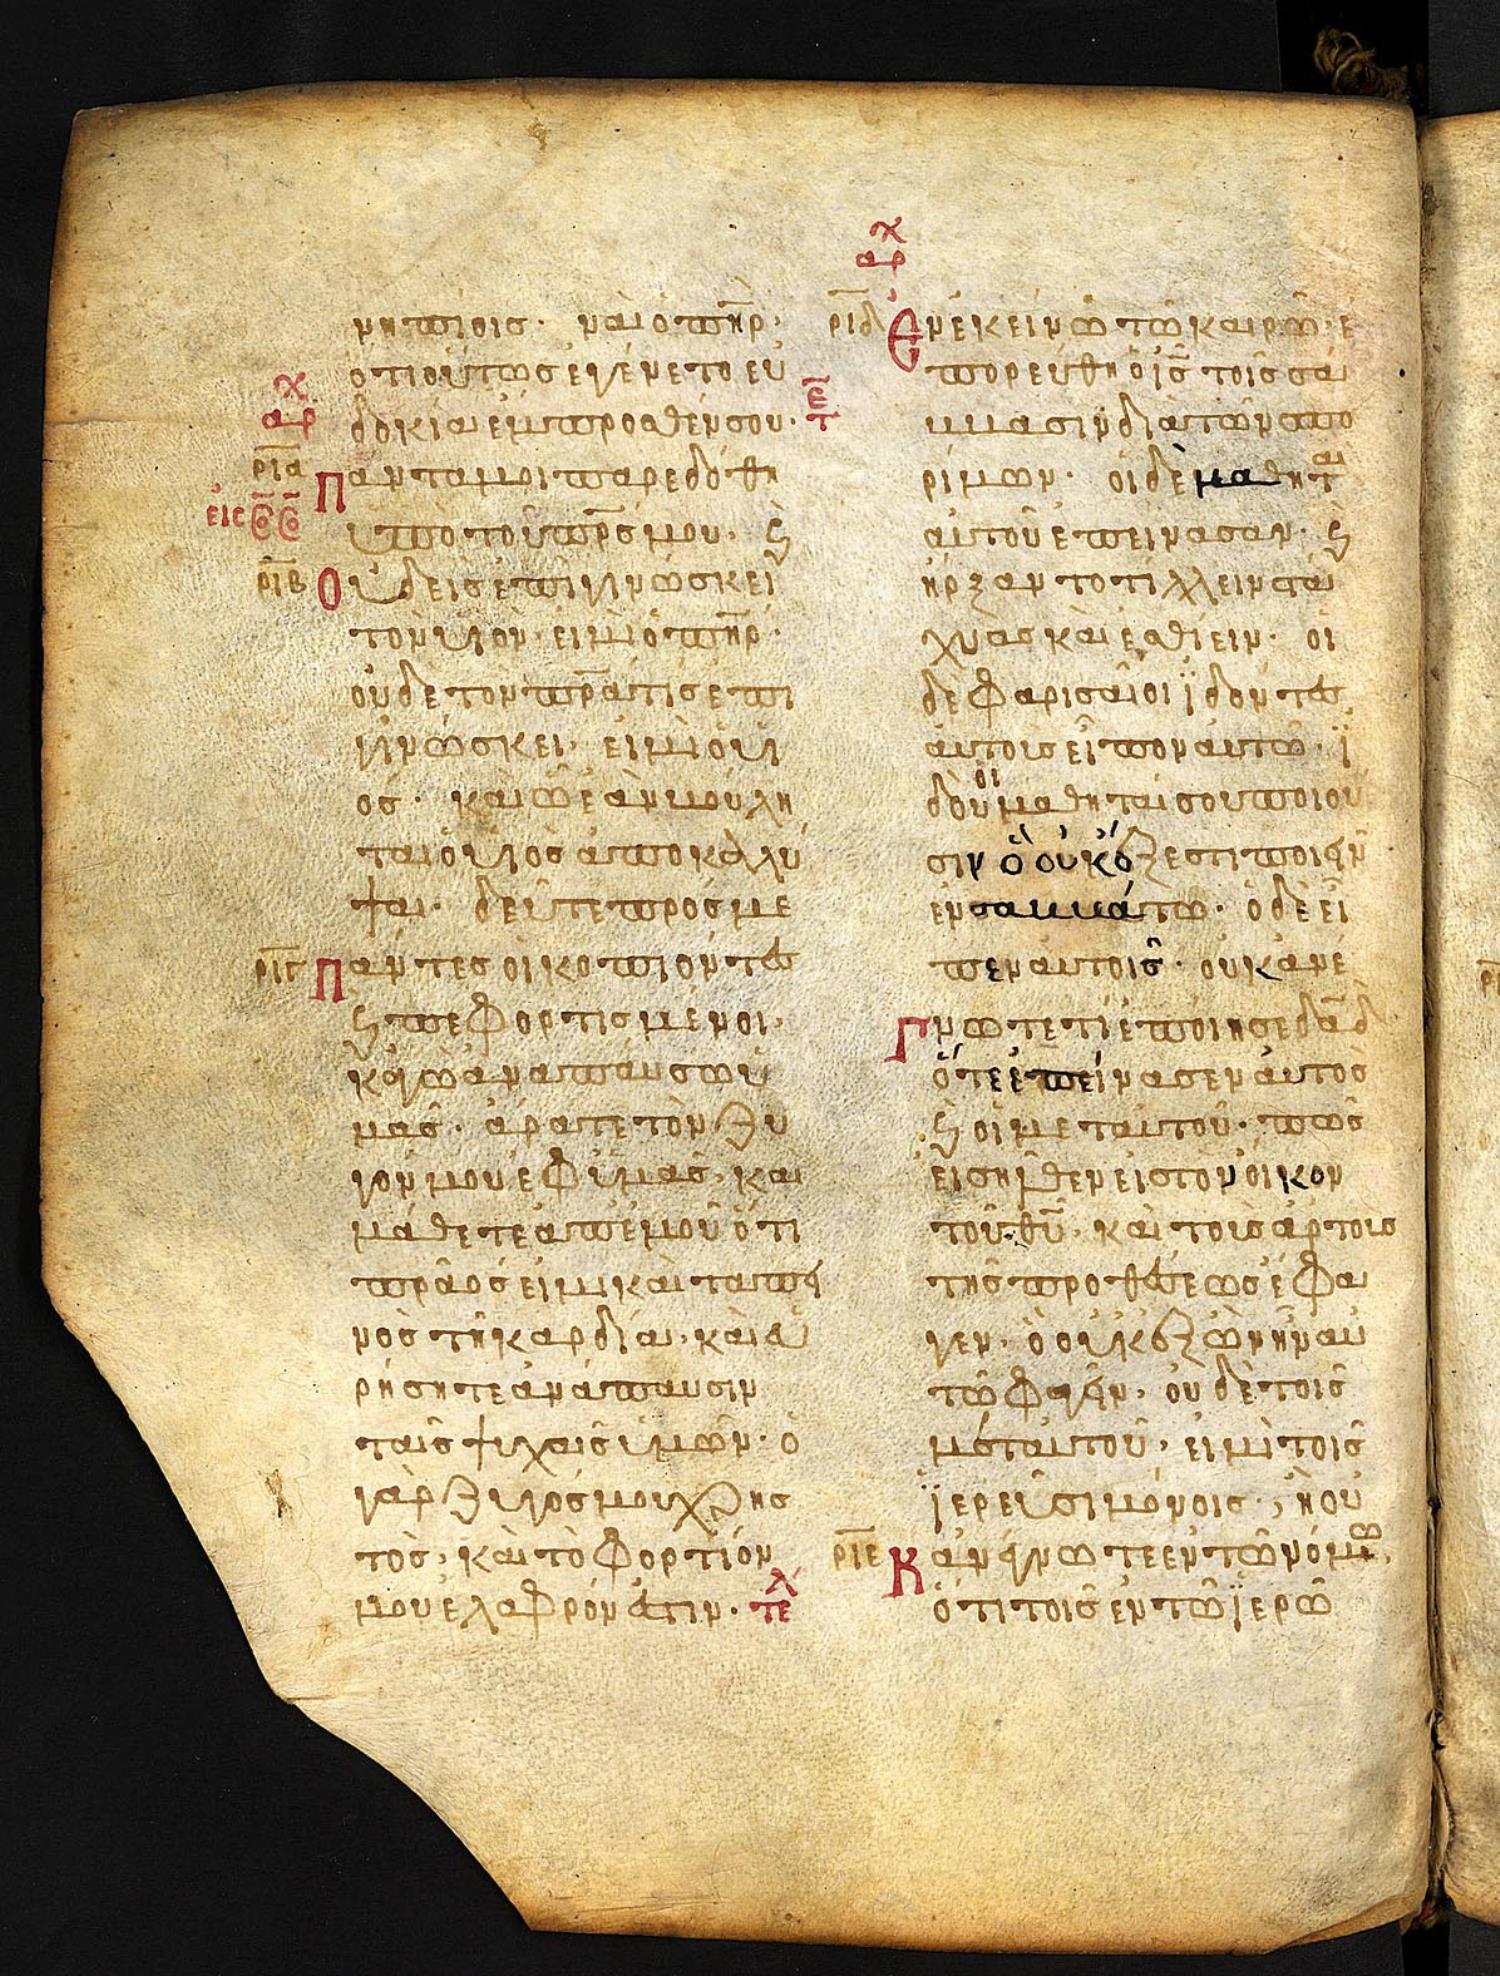 νηπίοις· ναὶ ὁ π̅ηρ·
ὅτι οὕτως ἐγένετο εὐ
δοκία ἔμπροσθέν σου·
Πάντα μοι παρεδόθη
ὑπὸ τοῦ πρ̅ς μου· ϗ
Οὐδεὶς ἐπιγινώσκει
τὸν υἱὸν· εἰ μὴ ὁ π̅ηρ·
οὐδὲ τὸν πρ̅α τὶς ἐπι
γινώσκει· εἰ μὴ ὁ υἱ
ός· καὶ ὧ ἐὰν βούλη
ται ὁ υἱὸς ἀποκαλύ
ψαι· δεῦτε πρός με
Πάντες οἱ κοπιόντες
ϗ πεφορτισμένοι·
κἀγὼ ἀναπαύσω ὑ
μᾶς· ἄρατε τὸν ζυ
γόν μου ἐφ ὑμᾶς· καὶ
μάθετε ἀπ ἐμοῦ ὅτι
πρᾶός εἰμι καὶ ταπει
νὸς τῆ καρδία· καὶ εὑ
ρήσητε ἀνάπαυσιν
ταῖς ψυχαῖς ὑμῶν· ὁ
γὰρ ζυγός μου χρης
τὸς· καὶ τὸ φορτίον
μου ἐλαφρόν ἐστιν· τε λ
αρχ
ρ̅ι̅α̅
εἰς
ρ̅ι̅β̅
ρ̅ι̅γ̅
ε̅
τ
αρχ
ρ̅ι̅δ̅
Ἐν ἐκείνω τῶ καιρῶ· ἐ
πορεύθη ὁ ι̅ς̅ τοῖς σά
ββασιν διὰ τῶν σπο
ρίμων· οἱ δὲ μαθηταὶ
αὐτοῦ ἐπείνασαν· ϗ
ἤρξαντο τίλλειν στά
χυας καὶ ἐσθίειν· οἱ
δὲ φαρισαῖοι ϊδόντες
αὐτοῖς εἶπον αὐτῶ· ϊ
δοὺ οἱ μαθηταί σου ποιοῦ
σιν ὃ οὐκ ἔξεστι ποιεῖν
ἐν σαββάτω· ὁ δὲ εἶ
πεν αὐτοῖς· οὐκ ἀνέ
Γνωτε τί ἐποίησε δα̅δ̅
ὅτε ἐπείνασεν αὐτὸς
ϗ οἱ μετ αὐτοῦ· πῶς
εἰσῆλθεν εἰς τὸν οἶκον
τοῦ θ̅υ̅· καὶ τοὺς ἄρτους
τῆς προθέσεως ἔφα
γεν· ὃ οὐκ ἐξὼν ἦν αὐ
τῶ φαγεῖν· οὐδὲ τοῖς
μετ αὐτοῦ· εἰ μὴ τοῖς
ϊερεῦσι μόνοις·; ἢ οὐ
Κ ἀνέγνωτε ἐν τῶ νόμω
ὅτι τοῖς ἐν τῶ ϊερῶ
ρ̅ι̅ε̅